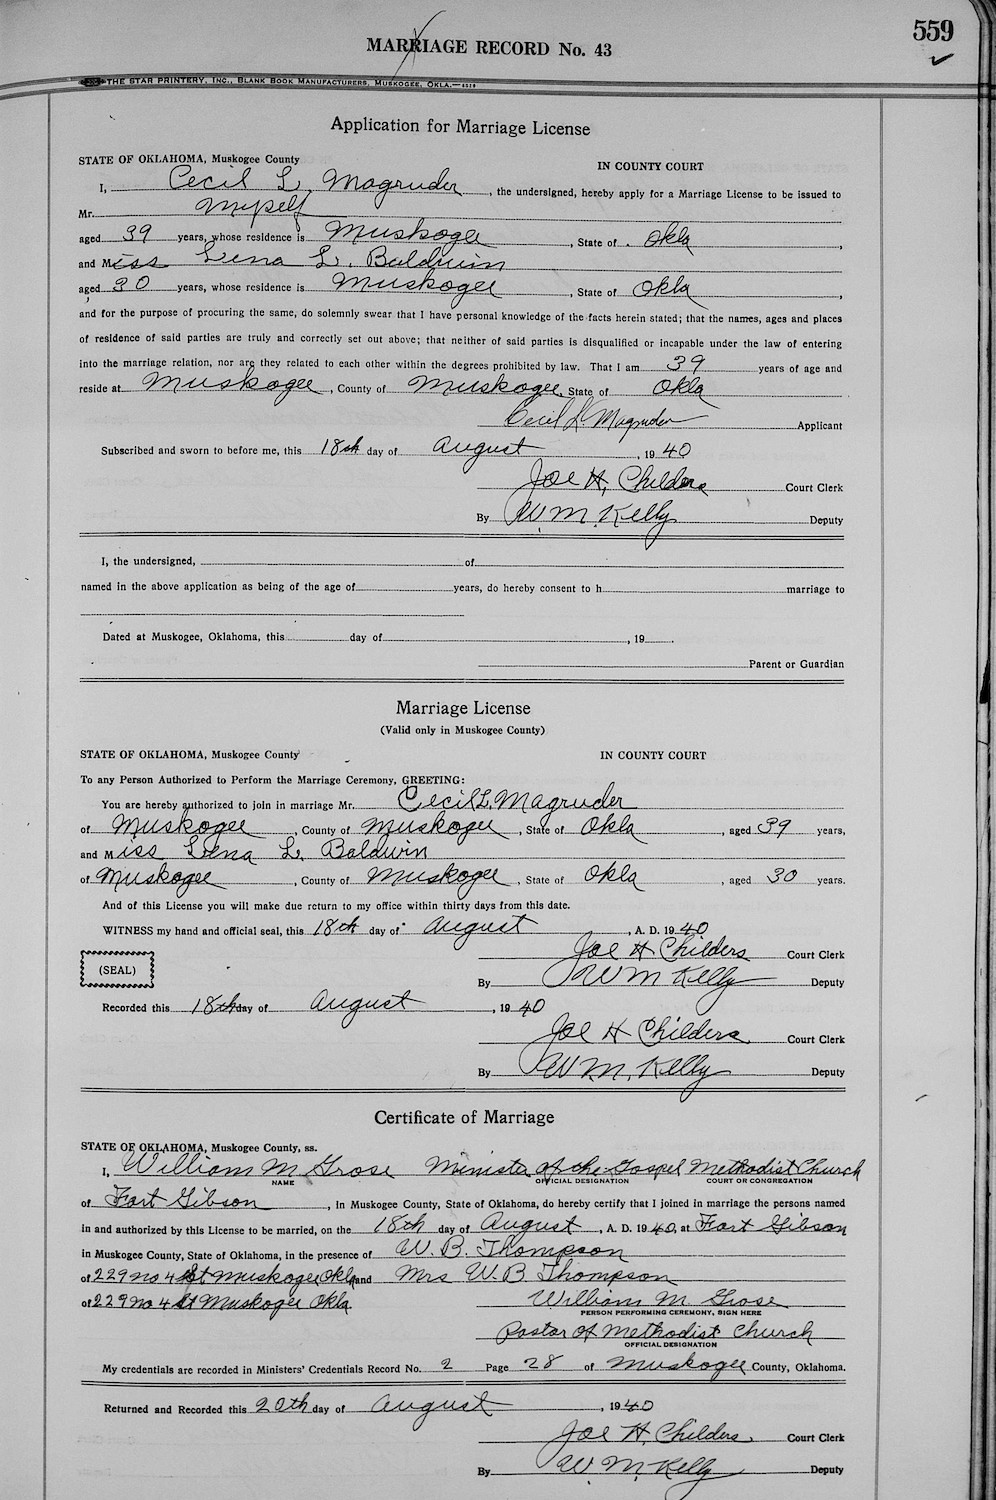 559
MARRIAGE RECORD No. 43
THE STAR PRINTERY, INC., BLANK BOOK MANUFACTURERS, MUSKOGEE, OKLA.
Application for Marriage License
STATE OF OKLAHOMA, Muskogee County IN COUNTY COURT
I, Cecil L. Magruder, the undersigned, hereby apply for a Marriage License to be issued to
Mr. Myself
aged 39 years, whose residence is Muskogee, State of Okla,
and Miss Lena L. Baldwin
aged 30 years, whose residence is Muskogee, State of Okla,
and for the purpose of procuring the same, do solemnly swear that I have personal knowledge of the facts herein stated; that the names, ages and places
of residence of said parties are truly and correctly set out above; that neither of said parties is disqualified or incapable under the law of entering
into the marriage relation, nor are they related to each other within the degrees prohibited by law. That I am 39 years of age and
reside at Muskogee, County of Muskogee, State of Okla
Cecil L. Magruder Applicant
Subscribed and sworn to before me, this 18th day of August, 1940
Joe H. Childers Court Clerk
By W. M. Kelly Deputy
I, the undersigned, of
named in the above application as being of the age of years, do hereby consent to h marriage to
Dated at Muskogee, Oklahoma, this day of , 19 .
Parent or Guardian
Marriage License
(Valid only in Muskogee County)
STATE OF OKLAHOMA, Muskogee County IN COUNTY COURT
To any Person Authorized to Perform the Marriage Ceremony, GREETING:
You are hereby authorized to join in marriage Mr. Cecil L. Magruder
of Muskogee, County of Muskogee, State of Okla, aged 39 years,
and Miss Lena L. Baldwin
of Muskogee, County of Muskogee, State of Okla, aged 30 years.
And of this License you will make due return to my office within thirty days from this date.
WITNESS my hand and official seal, this 18th day of August, A. D. 1940
Joe H Childers Court Clerk
(SEAL)
By W M Kelly Deputy
Recorded this 18th day of August, 1940
Joe H Childers Court Clerk
By W. M. Kelly Deputy
Certificate of Marriage
STATE OF OKLAHOMA, Muskogee County, ss.
I, William M Grose Minister of the Gospel Methodist Church
NAME OFFICIAL DESIGNATION COURT OR CONGREGATION
of Fort Gibson, in Muskogee County, State of Oklahoma, do hereby certify that I joined in marriage the persons named
in and authorized by this License to be married, on the 18th day of August, A. D. 1940, at Fort Gibson
in Muskogee County, State of Oklahoma, in the presence of W. B. Thompson
of 229 no 4 St Muskogee Okla and Mrs W. B. Thompson
of 229 no 4 St Muskogee Okla William M Grose
PERSON PERFORMING CEREMONY, SIGN HERE
Pastor of Methodist Church
OFFICIAL DESIGNATION
My credentials are recorded in Ministers' Credentials Record No. 2 Page 28 of Muskogee County, Oklahoma.
Returned and Recorded this 20th day of August, 1940
Joe H. Childers Court Clerk
By W. M. Kelly Deputy